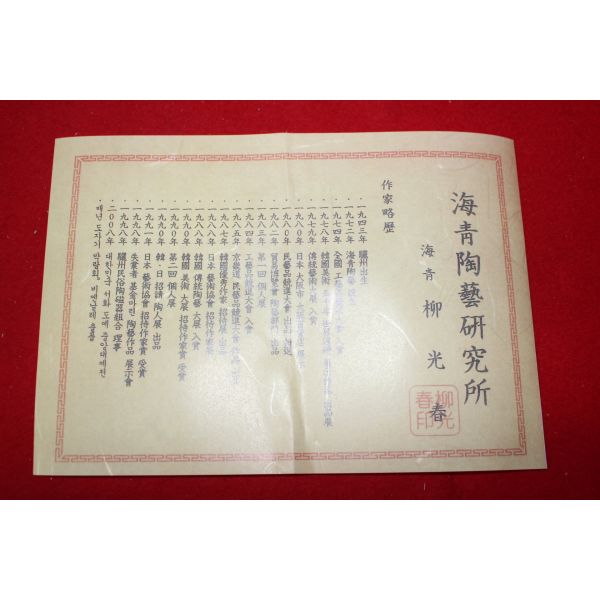 海青陶藝研究所
海青 柳光春
柳光春印
作家略歷
·一九四三年 驪州出生
·一九七二年 海青陶藝
·一九七四年 全國 工藝 入賞
·一九七八年 韓國美術 出品展
·一九七九年 傳統藝術大展 入賞
·一九八〇年 日本 大阪市
·一九八〇年 民藝品競進大會 出品
·一九八二年 貿易博覽會 陶藝部門 出品
·一九八三年 第一回 個人展
·一九八四年 工藝品競進大會 入會
·一九八五年 京畿道 民藝品競進大會
·一九八七年 韓國優秀作家 招待展 出品
·一九八八年 日本 藝術協會 招待作家
·一九八八年 韓國 傳統陶藝 大展 入賞
·一九九〇年 韓國 美術 大展 招待作家賞 受賞
·一九九〇年 第二回 個人展
·一九九〇年 韓·日 招請 陶人展 出品
·一九九一年 日本 藝術協會 招待作家賞 受賞
·一九九八年 失業者 基金마련 陶藝作品 展示會
·一九九八年 驪州民俗陶磁器組合 理事
·二〇〇八年 대한민국 서화 도예 중앙대제전
·매년 도자기 박람회, 비엔날레 출품